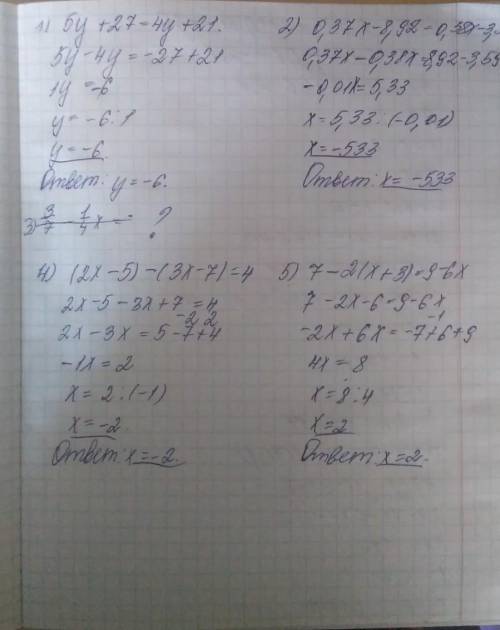 1) 5y + 27 = 4y + 21.
5y - 4y = -27 + 21
1y = -6
y = -6 : 1
y = -6.
Ответ: y = -6.
2) 0,37x - 8,92 = 0,38x - 3,
0,37x - 0,38x = 8,92 - 3,59
-0,01x = 5,33
x = 5,33 : (-0,01)
x = -533
Ответ: x = -533
3) 3/7 1/4 x = ?
4) (2x - 5) - (3x - 7) = 4
2x - 5 - 3x + 7 = 4
-2 2
2x - 3x = 5 - 7 + 4
-1x = 2
x = 2 : (-1)
x = -2
Ответ: x = -2.
5) 7 - 2(x + 3) = 9 - 6x
7 - 2x - 6 = 9 - 6x
-1
-2x + 6x = -7 + 6 + 9
4x = 8
x = 8 : 4
x = 2
Ответ: x = 2.